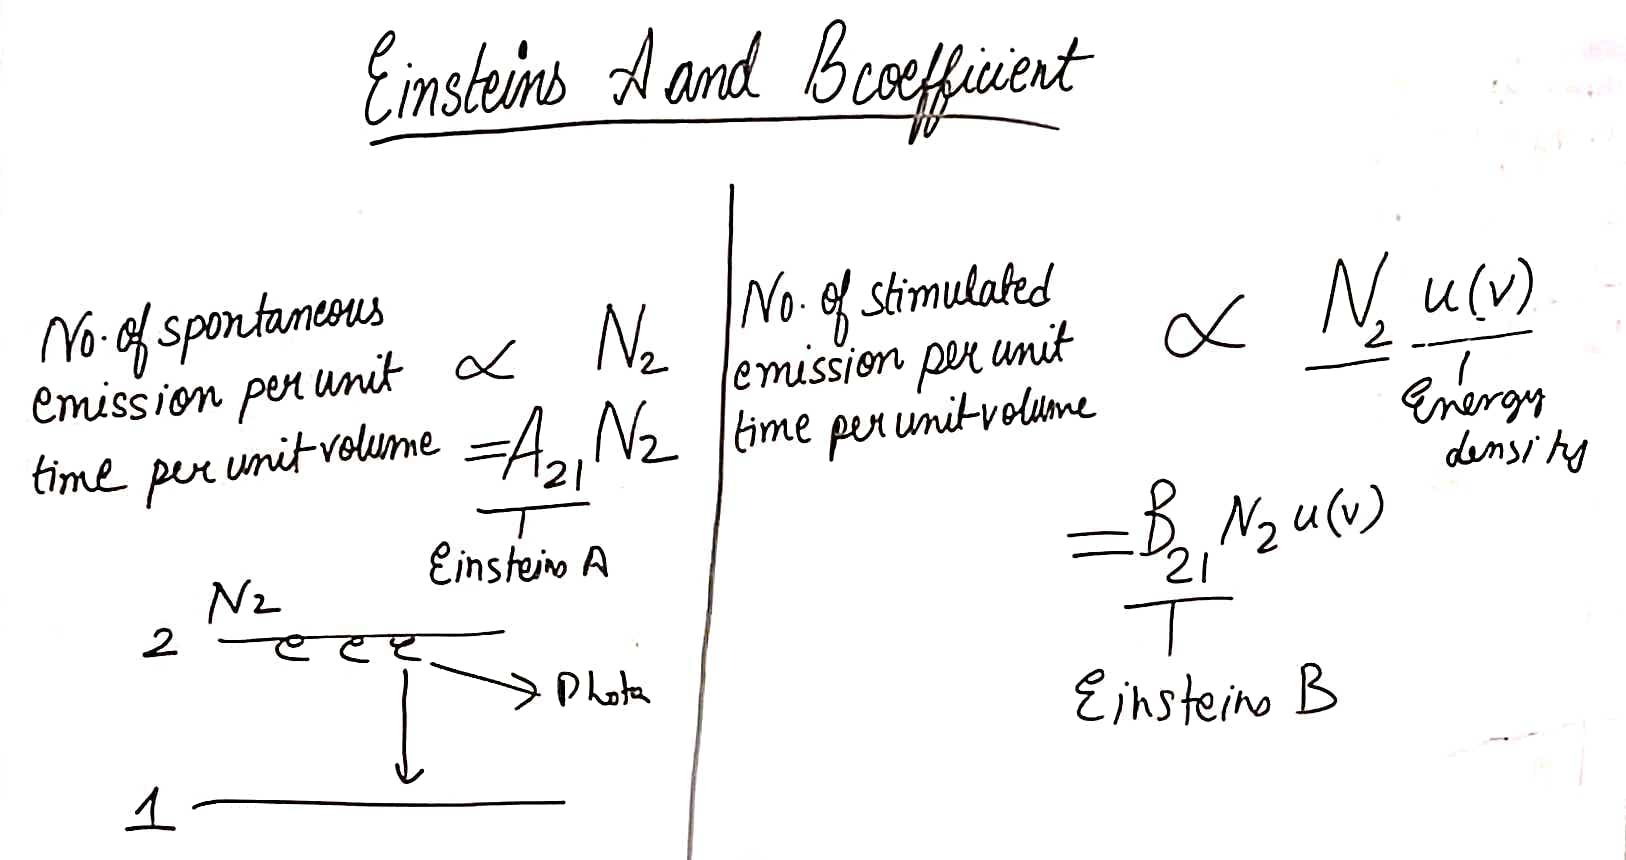 Einsteins A and B coefficient
No. of spontaneous
emission per unit
time per unit volume
∝ N₂
= A₂₁ N₂
Einsteins A
N₂
2
e e e
Photo
1
No. of stimulated
emission per unit
time per unit volume
∝ N₂ u(ν)
Energy
density
= B₂₁ N₂ u(ν)
Einsteins B